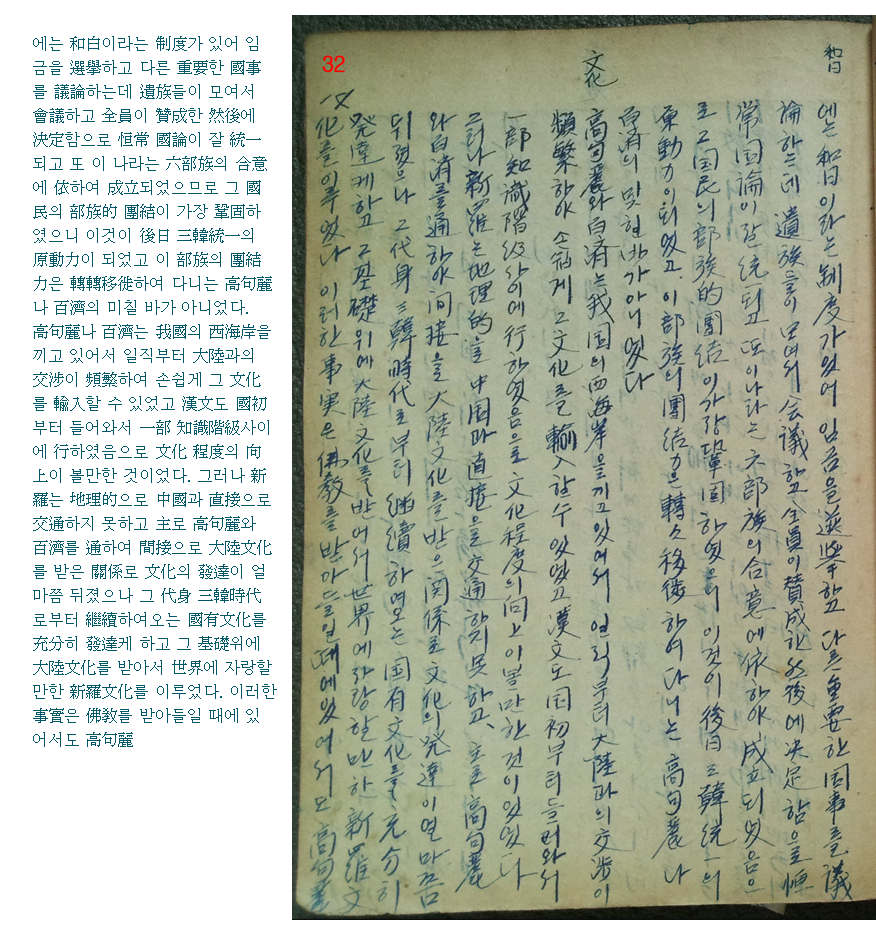 에는 和白이라는 制度가 있어 임
금을 選擧하고 다른 重要한 國事
를 議論하는데 遺族들이 모여서
會議하고 全員이 贊成한 然後에
決定함으로 恒常 國論이 잘 統一
되고 또 이 나라는 六部族의 合意
에 依하여 成立되었으므로 그 國
民의 部族的 團結이 가장 鞏固하
였으니 이것이 後日 三韓統一의
原動力이 되었고 이 部族의 團結
力은 轉轉移徙하여 다니는 高句麗
나 百濟의 미칠 바가 아니었다.
高句麗나 百濟는 我國의 西海岸을
끼고 있어서 일직부터 大陸과의
交涉이 頻繁하여 손쉽게 그 文化
를 輸入할 수 있었고 漢文도 國初
부터 들어와서 一部 知識階級사이
에 行하였음으로 文化 程度의 向
上이 볼만한 것이었다. 그러나 新
羅는 地理的으로 中國과 直接으로
交通하지 못하고 主로 高句麗와
百濟를 通하여 間接으로 大陸文化
를 받은 關係로 文化의 發達이 얼
마쯤 뒤졌으나 그 代身 三韓時代
로부터 繼續하여오는 國有文化를
充分히 發達케 하고 그 基礎위에
大陸文化를 받아서 世界에 자랑할
만한 新羅文化를 이루었다. 이러한
事實은 佛敎를 받아들일 때에 있
어서도 高句麗
32
和白
에는 和白이라는 制度가 있어 임금을 選擧하고 다른 重要한 国事를 議
論하는데 遺族들이 모여서 会議하고 全員이 賛成한 然後에 決定함으로 恒
常 国論이 잘 統一되고 또 이 나라는 六部族의 合意에 依하야 成立되였음으
로 그 国民의 部族的 團結이 가장 鞏固하였으니 이것이 後日 三韓統一의
原動力이 되였고. 이 部族의 團結力은 轉々移徙하여 다니는 高句麗나
百済의 및힐 바가 아니였다
文化
高句麗와 百済는 我国의 西海岸을 끼고 있어서 일직부터 大陸과의 交渉이
頻繁하야 손쉽게 그 文化를 輸入할 수 있였고 漢文도 国初부터 들러와서
一部 知識階級사이에 行하였음으로 文化程度의 向上이 볼만한 것이였다
그러나 新羅는 地理的을 中国과 直接을 交通하지 못하고, 主로 高句麗
와 百済를 通하야 间接을 大陸文化를 받은 関係로 文化의 発達이 얼마끔
뒤졌으나 그 代身 三韓時代로부터 継續하여오는 国有文化를 充分히
発達케하고 그 基礎위에 大陸文化를 받어서 世界에 자랑할만한 新羅文
化를 이루었다 이러한 事実은 佛教를 받아들일 때에 있어서도 高句麗